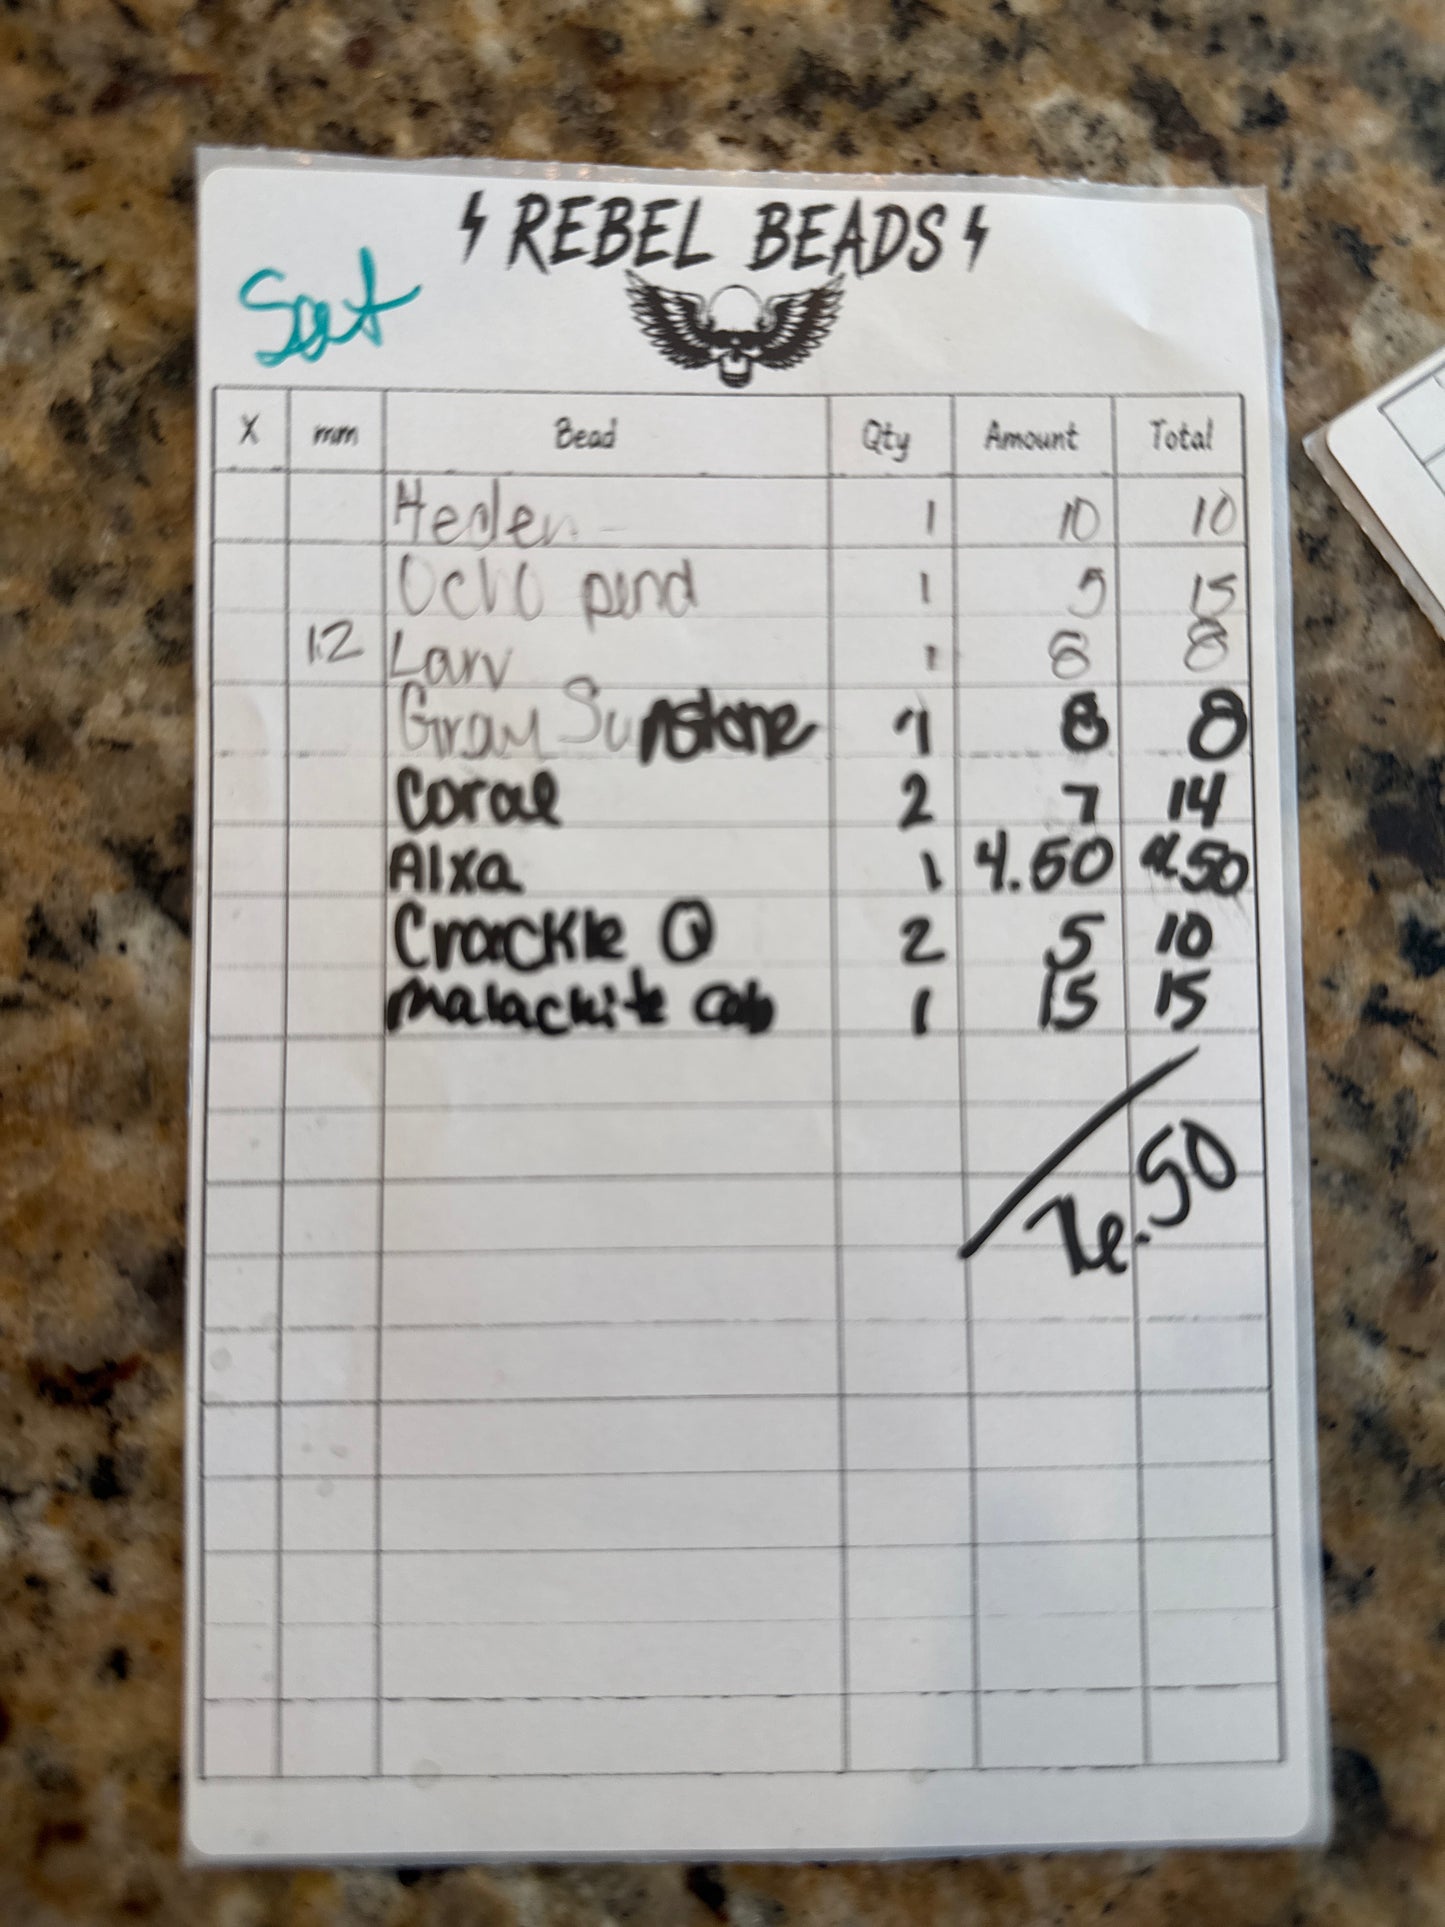 REBEL BEADS
Sat
X mm Bead Qty Amount Total
1 10 10
Ocho pend 1 5 15
12 Larv 1 8 8
Gray Sunstone 1 8 8
Coral 2 7 14
Alxa 1 4.50 4.50
Crackle Q 2 5 10
Malachite cab 1 15 15